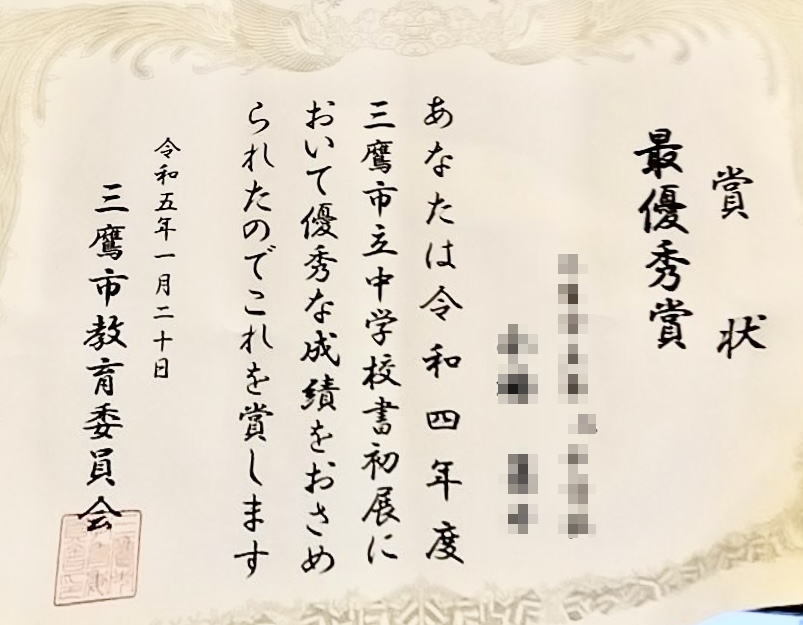 賞状
最優秀賞
あなたは令和四年度
三鷹市立中学校書初展に
おいて優秀な成績をおさめ
られたのでこれを賞します
令和五年一月二十日
三鷹市教育委員会